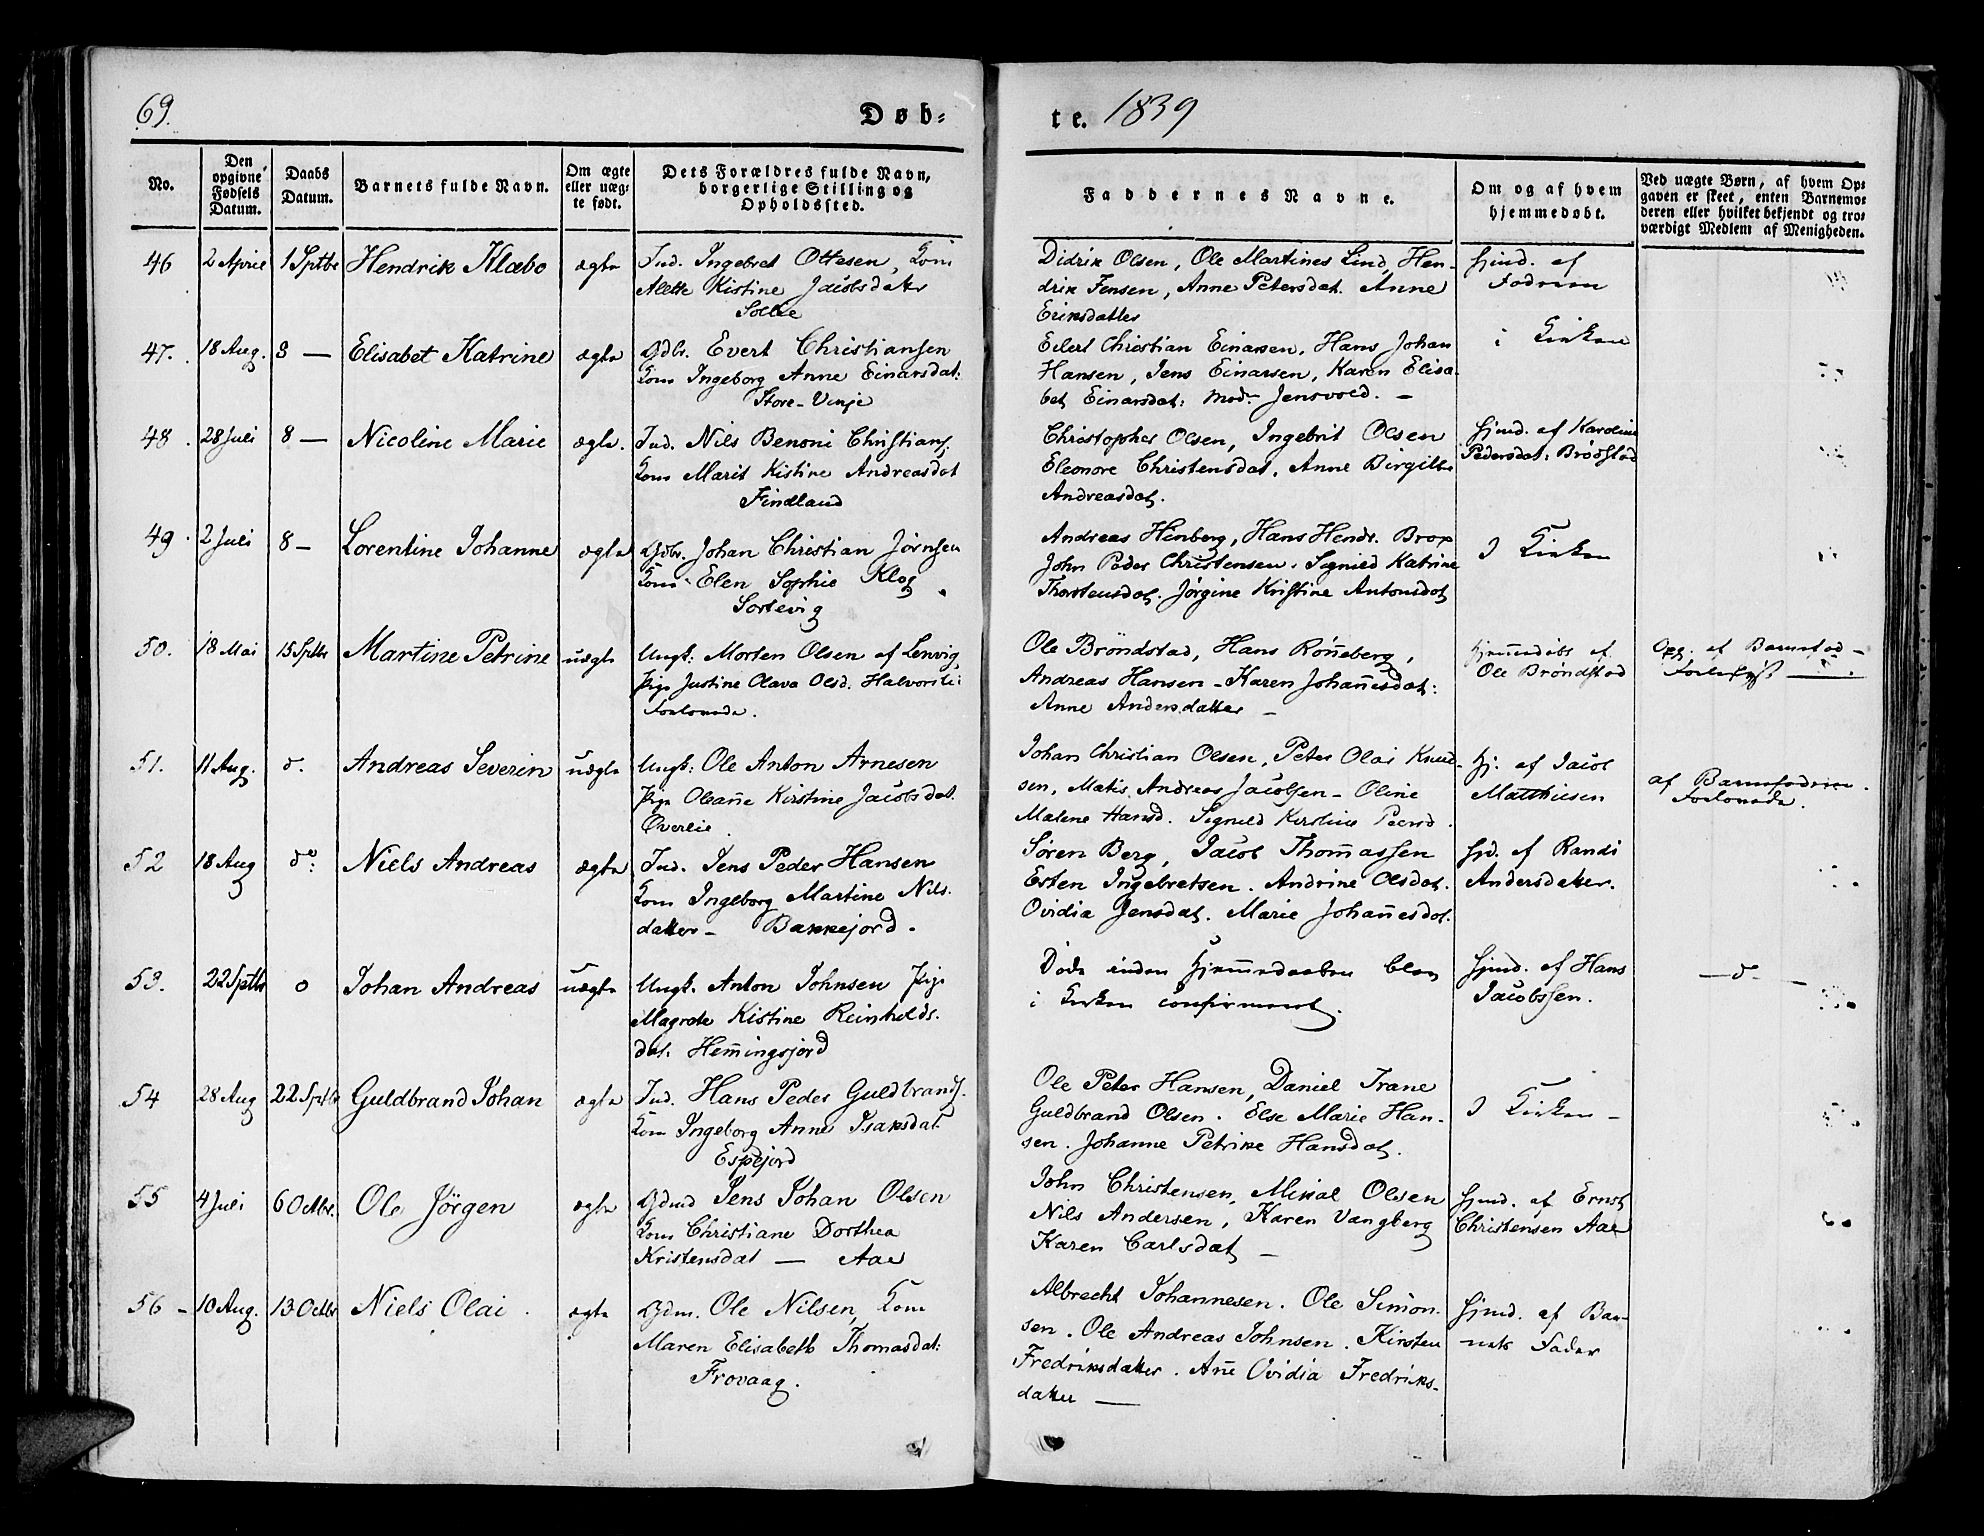 69.
Døb=
te. 1839
No.
Den opgivne Fødsels Datum.
Daabs Datum.
Barnets fulde Navn.
Om ægte eller uæg= te født.
Dets Forældres fulde Navn, borgerlige Stilling og Opholdssted.
Faddernes Navne.
Om og af hvem hjemmedøbt.
Ved uægte Børn, af hvem Op= gaven er skeet, enten Barnemo= deren eller hvilket bekjendt og tro= værdigt Medlem af Menigheden.
46 2 April 1 Sptbr Hendrik Klæbo ægte Ind. Ingebret Ottesen, Kone
Alette Kistine Jacobsdatter
Didrik Olsen, Ole Martines Lind, Hen-
drik Jensen, Anne Petersdat. Anne
Eriksdatter
Hjmd. af
Faderen
47. 18 Aug. 8 — Elisabet Katrine ægte Gdbr. Evert Christiansen
Kone Ingeborg Anne Einarsdat:
Store-Vinje
Eilert Christian Einarsen, Hans Johan
Hansen, Jens Einarsen, Karen Elisa-
bet Einarsdat: Jensvold. —
i Kirken
48. 28 Juli 8 — Nicoline Marie ægte. Ind. Nils Benoni Christians.
Kone Marit Kistine Andreasdat
Findland
Christopher Olsen, Ingebrit Olsen
Eleonore Christensdat, Anne Birgitte
Andreasdat.
Hjmd. af Karoline
Pedersdat: Brödstad
49. 2 Juli 8 — Lorentine Johanne ægte Gdbr. Johan Christian Jørnsen
Kone Elen Sophie Klog
Sortevig
Andreas Henberg, Hans Hendr. Brox
John Peder Christensen. Signild Katrine
Thorstensdat. Jørgine Kristine Antonsdat
I Kirken
50. 18 Mai 15 Sptbr Martine Petrine uægte Ungk: Morten Olsen af Lenvig,
Pige Justine Olava Olsd. Halvors
Forlovede.
Ole Bröndstad, Hans Röneberg,
Andreas Hansen — Karen Johañesdat:
Anne Andersdatter —
Hjemmedöbt af
Ole Bröndstad
Opg. af
51. 11 Aug. d. Andreas Severin uægte Ungk: Ole Anton Arnesen
Pige Oleañe Kirstine Jacobsdat.
Overlie.
Johan Christian Olsen, Peter Olai Knud-
sen, Matis Andreas Jacobsen — Oline
Malene Hansd. Signild Kirstine Peersd.
Hj. af Jacob
Matthiesen
af Barnefaderen.
Forlovede.
52 18 Aug do: Niels Andreas ægte Ind. Jens Peder Hansen
Kone Ingeborg Martine Nils-
datter — Bakkejord.
Søren Berg, Jacob Thomassen
Erten Ingebretsen. Andrine Olsdat.
Ovidia Jensdat. Marie Johañesdat.
Hjd. af Randi
Andersdatter.
53. 22 Sptbr o Johan Andreas uægte Ungk. Anton Johnsen Pige
Magrete Kistine Reinholds-
dat. Hem̃ingsjord
Döde inden Hjem̃edaaben blev
i Kirken confirmeret.
Hjmd. af Hans
Jacobssen.
— d —
54 28 Aug 22 Sptbr Guldbrand Johan ægte Ind. Hans Peder Guldbrands.
Kone Ingeborg Anne Isaksdat
Espejord
Ole Peter Hansen, Daniel Trane
Guldbrand Olsen. Else Marie Han-
sen. Johanne Petrike Hansdat.
I Kirken —
55 4 Juli 6 Octbr. Ole Jörgen ægte Jens Johan Olsen
Kone Christiane Dorthea
Kristensdat — Aae
John Christensen, Mikal Olsen
Nils Andersen, Karen Vangberg
Karen Carlsdat —
Hjmd. af Ernst
Christensen Aae
56 — 10 Aug. 13 Octbr Niels Olai. ægte Gdm. Ole Nilsen, Kone
Maren Elisabeth Thomasdat:
Frovaag.
Albrecht Johannesen. Ole Simon-
sen. Ole Andreas Johnsen. Kirsten
Fredriksdatter. Añe Ovidia Fredriks-
datter —
Hjmd. af Bar-
nets Fader